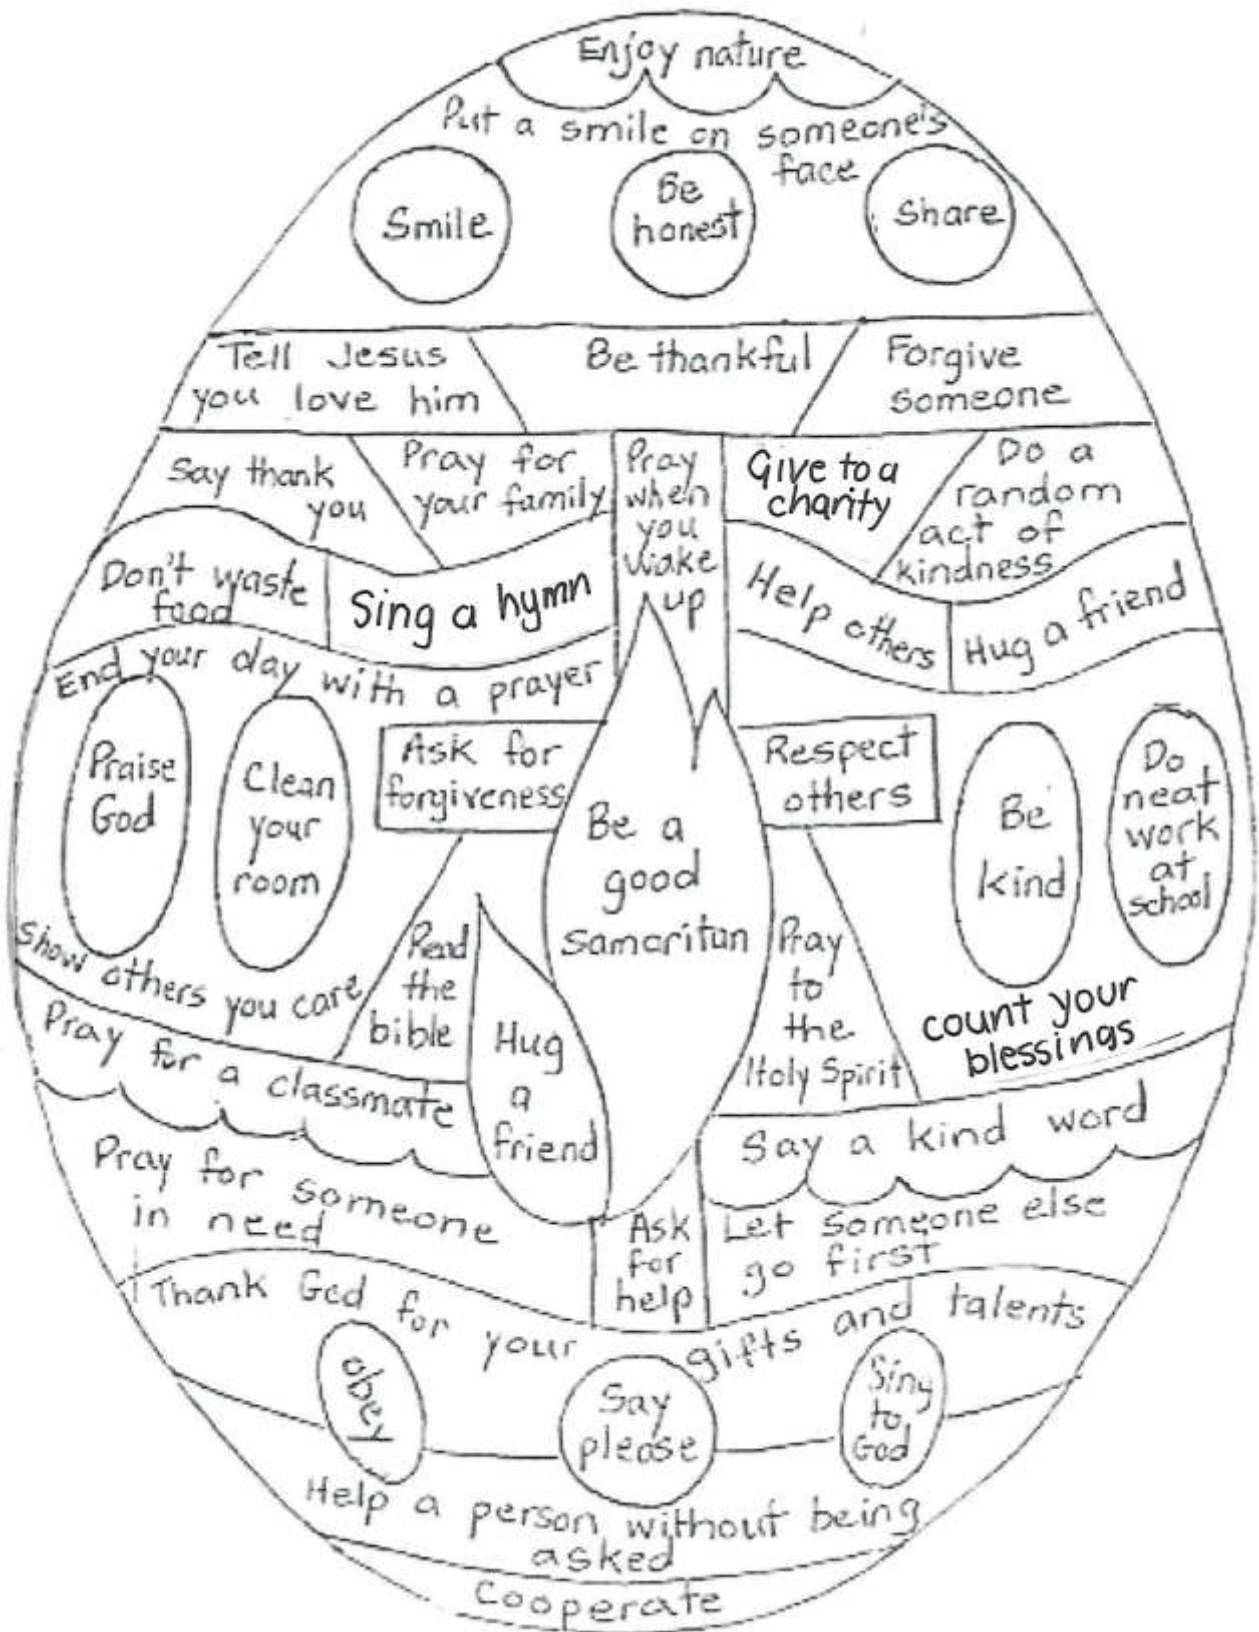 Enjoy nature
Put a smile on someone's
face
Smile
Be
honest
Share
Tell Jesus
you love him
Be thankful
Forgive
someone
Say thank
you
Pray for
your family
Pray
when
you
wake
up
Give to a
charity
Do a
random
act of
kindness
Don't waste
food
Sing a hymn
Help others
Hug a friend
End your day with a prayer
Praise
God
Clean
your
room
Ask for
forgiveness
Be a
good
samaritan
Respect
others
Be
kind
Do
neat
work
at
school
Show others you care
Read
the
bible
Hug
a
friend
Pray
to
the
Holy Spirit
count your
blessings
Pray for a classmate
Say a kind word
Pray for someone
in need
Ask
for
help
Let someone else
go first
Thank God for your gifts and talents
obey
Say
please
Sing
to
God
Help a person without being
asked
Cooperate